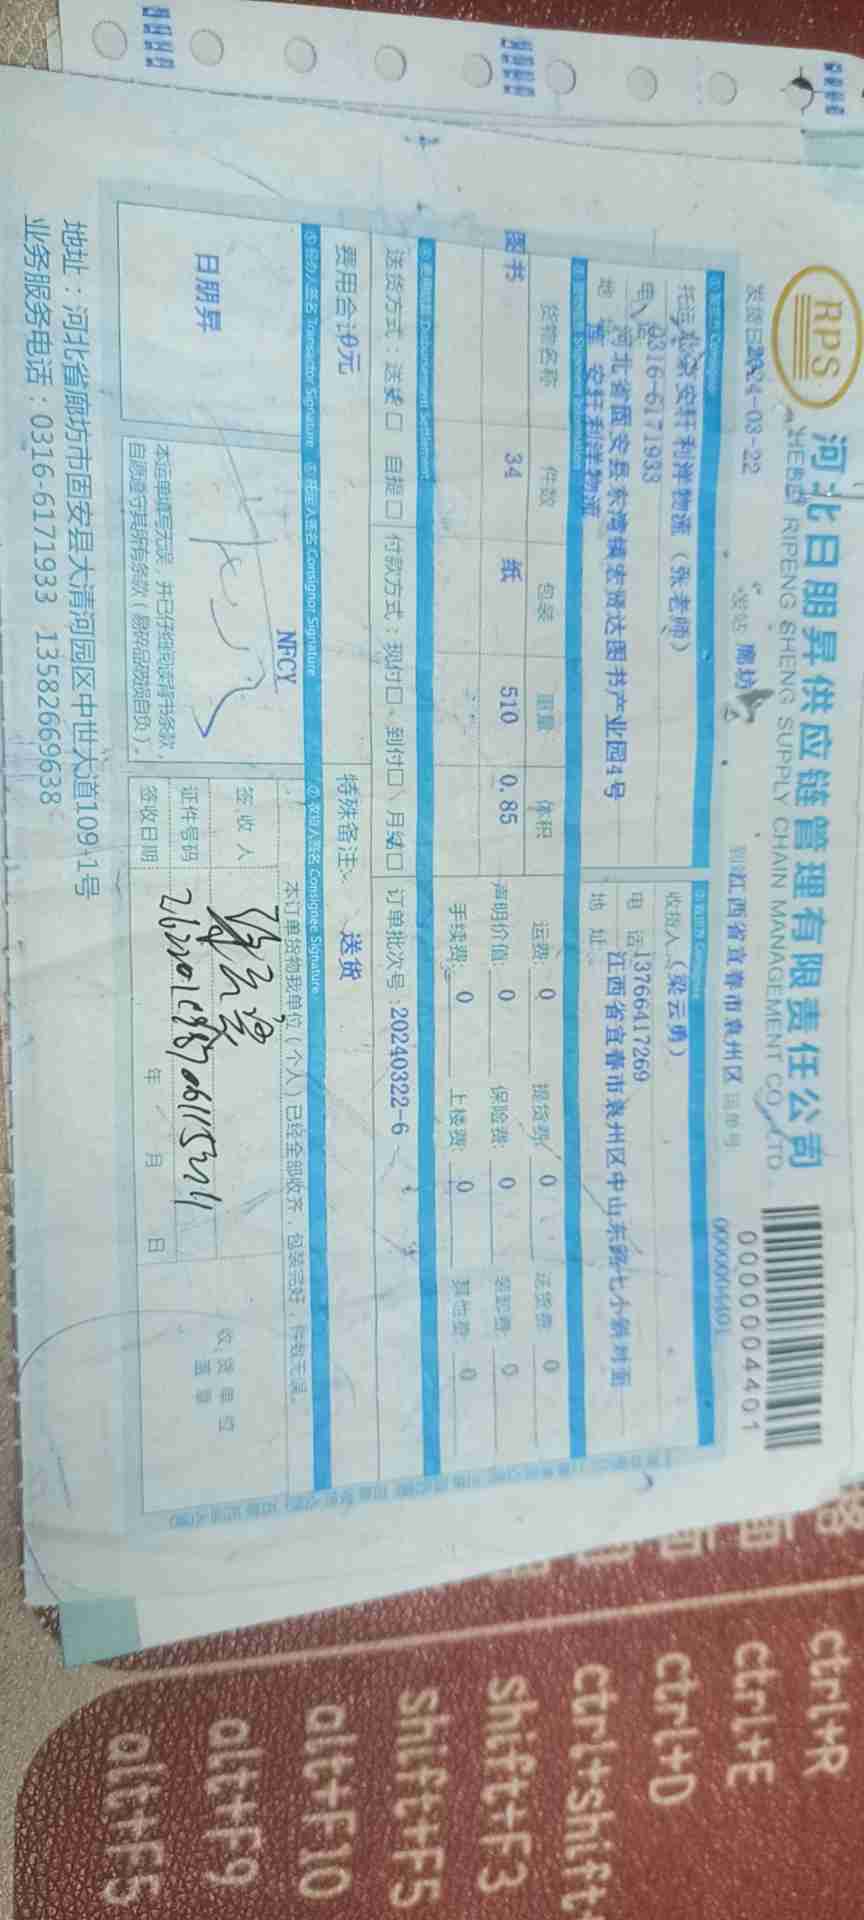 RPS
河北日朋昇供应链管理有限责任公司
HEBEI RIPENG SHENG SUPPLY CHAIN MANAGEMENT CO.,LTD
0000004401
2024-03-22
发站 廊坊
江西省宜春市袁州区 运单号 0000004401
安轩利洋物流（张老师）
收货人 （梁云勇）
0316-6171933
电 话 13766417269
河北省固安县东湾镇宏贤达图书产业园4号
安轩利洋物流
地 址 江西省宜春市袁州区中山东路七小斜对面
货物名称 件数 包装 重量 体积
图书 34 纸 510 0.85
运费: 0 提货费: 0 送货费: 0
声明价值: 0 保险费: 0 装卸费: 0
手续费: 0 上楼费: 0 其他费: 0
Disbursement Settlement
送货方式：送货口 自提口 付款方式：现付口 到付口 月结口 订单批次号：20240322-6
费用合计0元 特殊备注: 送货
⑤ 经办人签名 Transactor Signature ⑥ 托运人签名 Consignor Signature ⑦ 收货人签名 Consignee Signature
日朋昇
NFCY
本订单货物我单位（个人）已经全部收齐，包装完好，件数无误。
签 收 人
证件号码
签收日期 年 月 日
收货单位
盖章
本运单填写无误，并已仔细阅读背书条款，
自愿遵守其所有条款（易碎品破损自负）。
地址：河北省廊坊市固安县大清河园区中世大道109+1号
业务服务电话：0316-6171933 13582669638
ctrl+R
ctrl+E
ctrl+D
ctrl+shift+
shift+F3
shift+F5
alt+F10
alt+F9
alt+F5